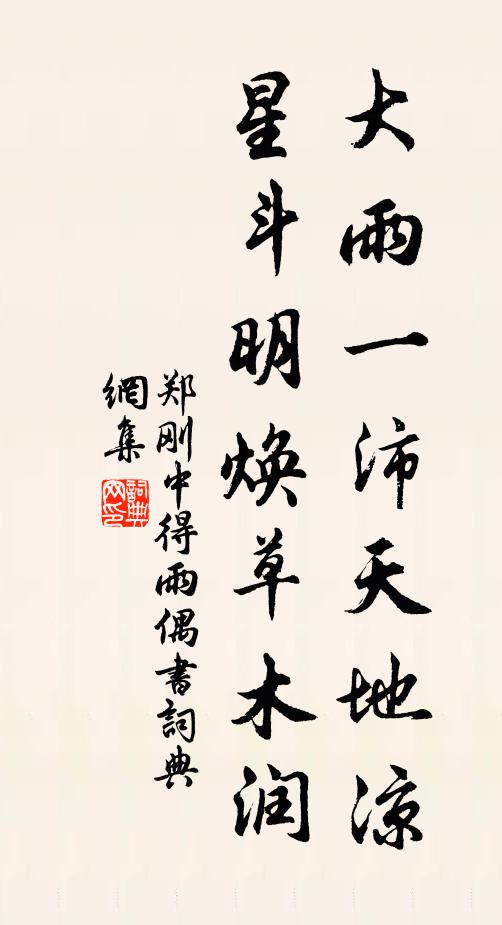 大雨一沛天地凉
星斗明焕草木润
郑刚中得雨偶书詞典
網集
詞典
网印